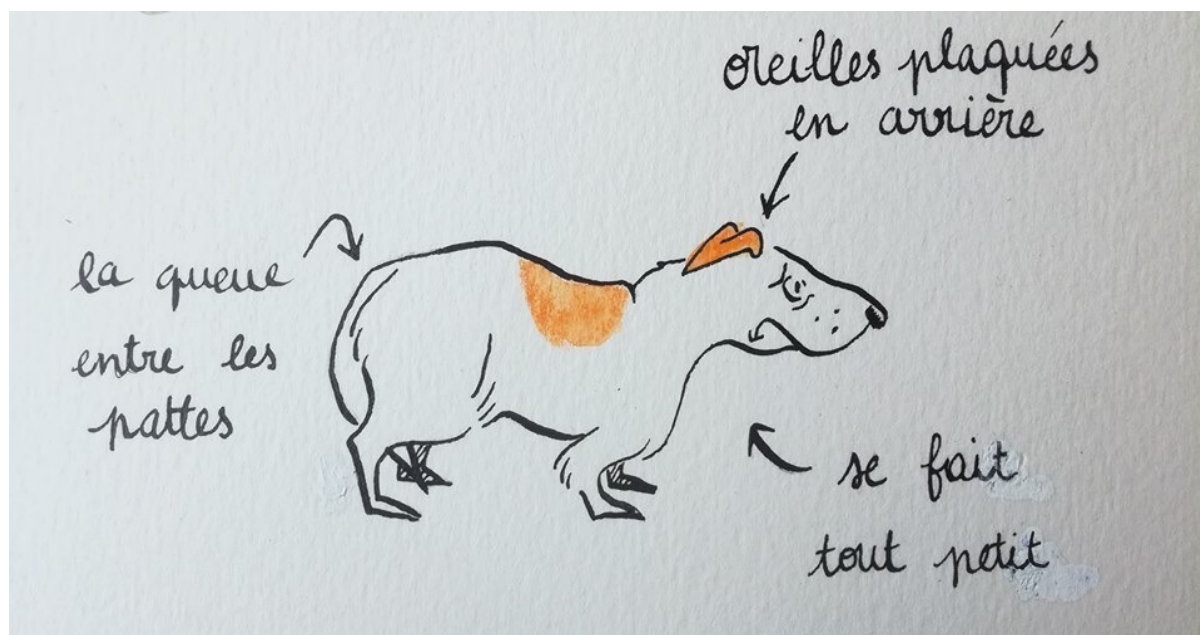 oreilles plaquées
en arrière
la queue
entre les
pattes
se fait
tout petit